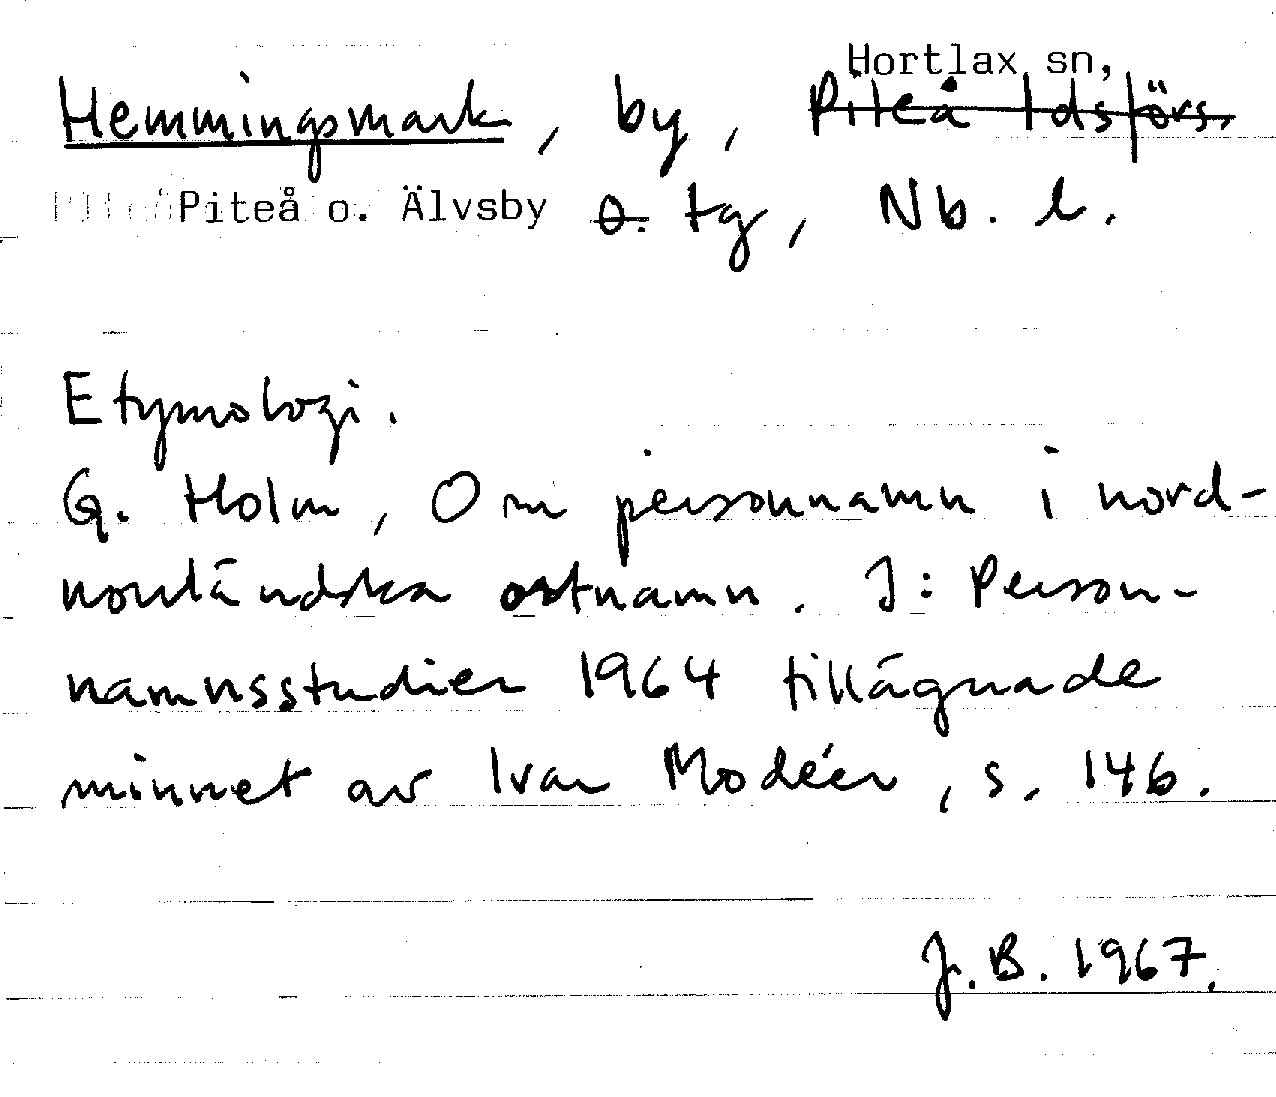 Hortlax sn,
Hemmingsmark, by, Piteå ldsförs.
Piteå o. Älvsby o. tg, Nb. l.
Etymologi.
G. Holm, Om personnamn i nord-
norrländska ortnamn. I: Person-
namnsstudier 1964 tillägnade
minnet av Ivar Modéer, s. 146.
J.B. 1967.